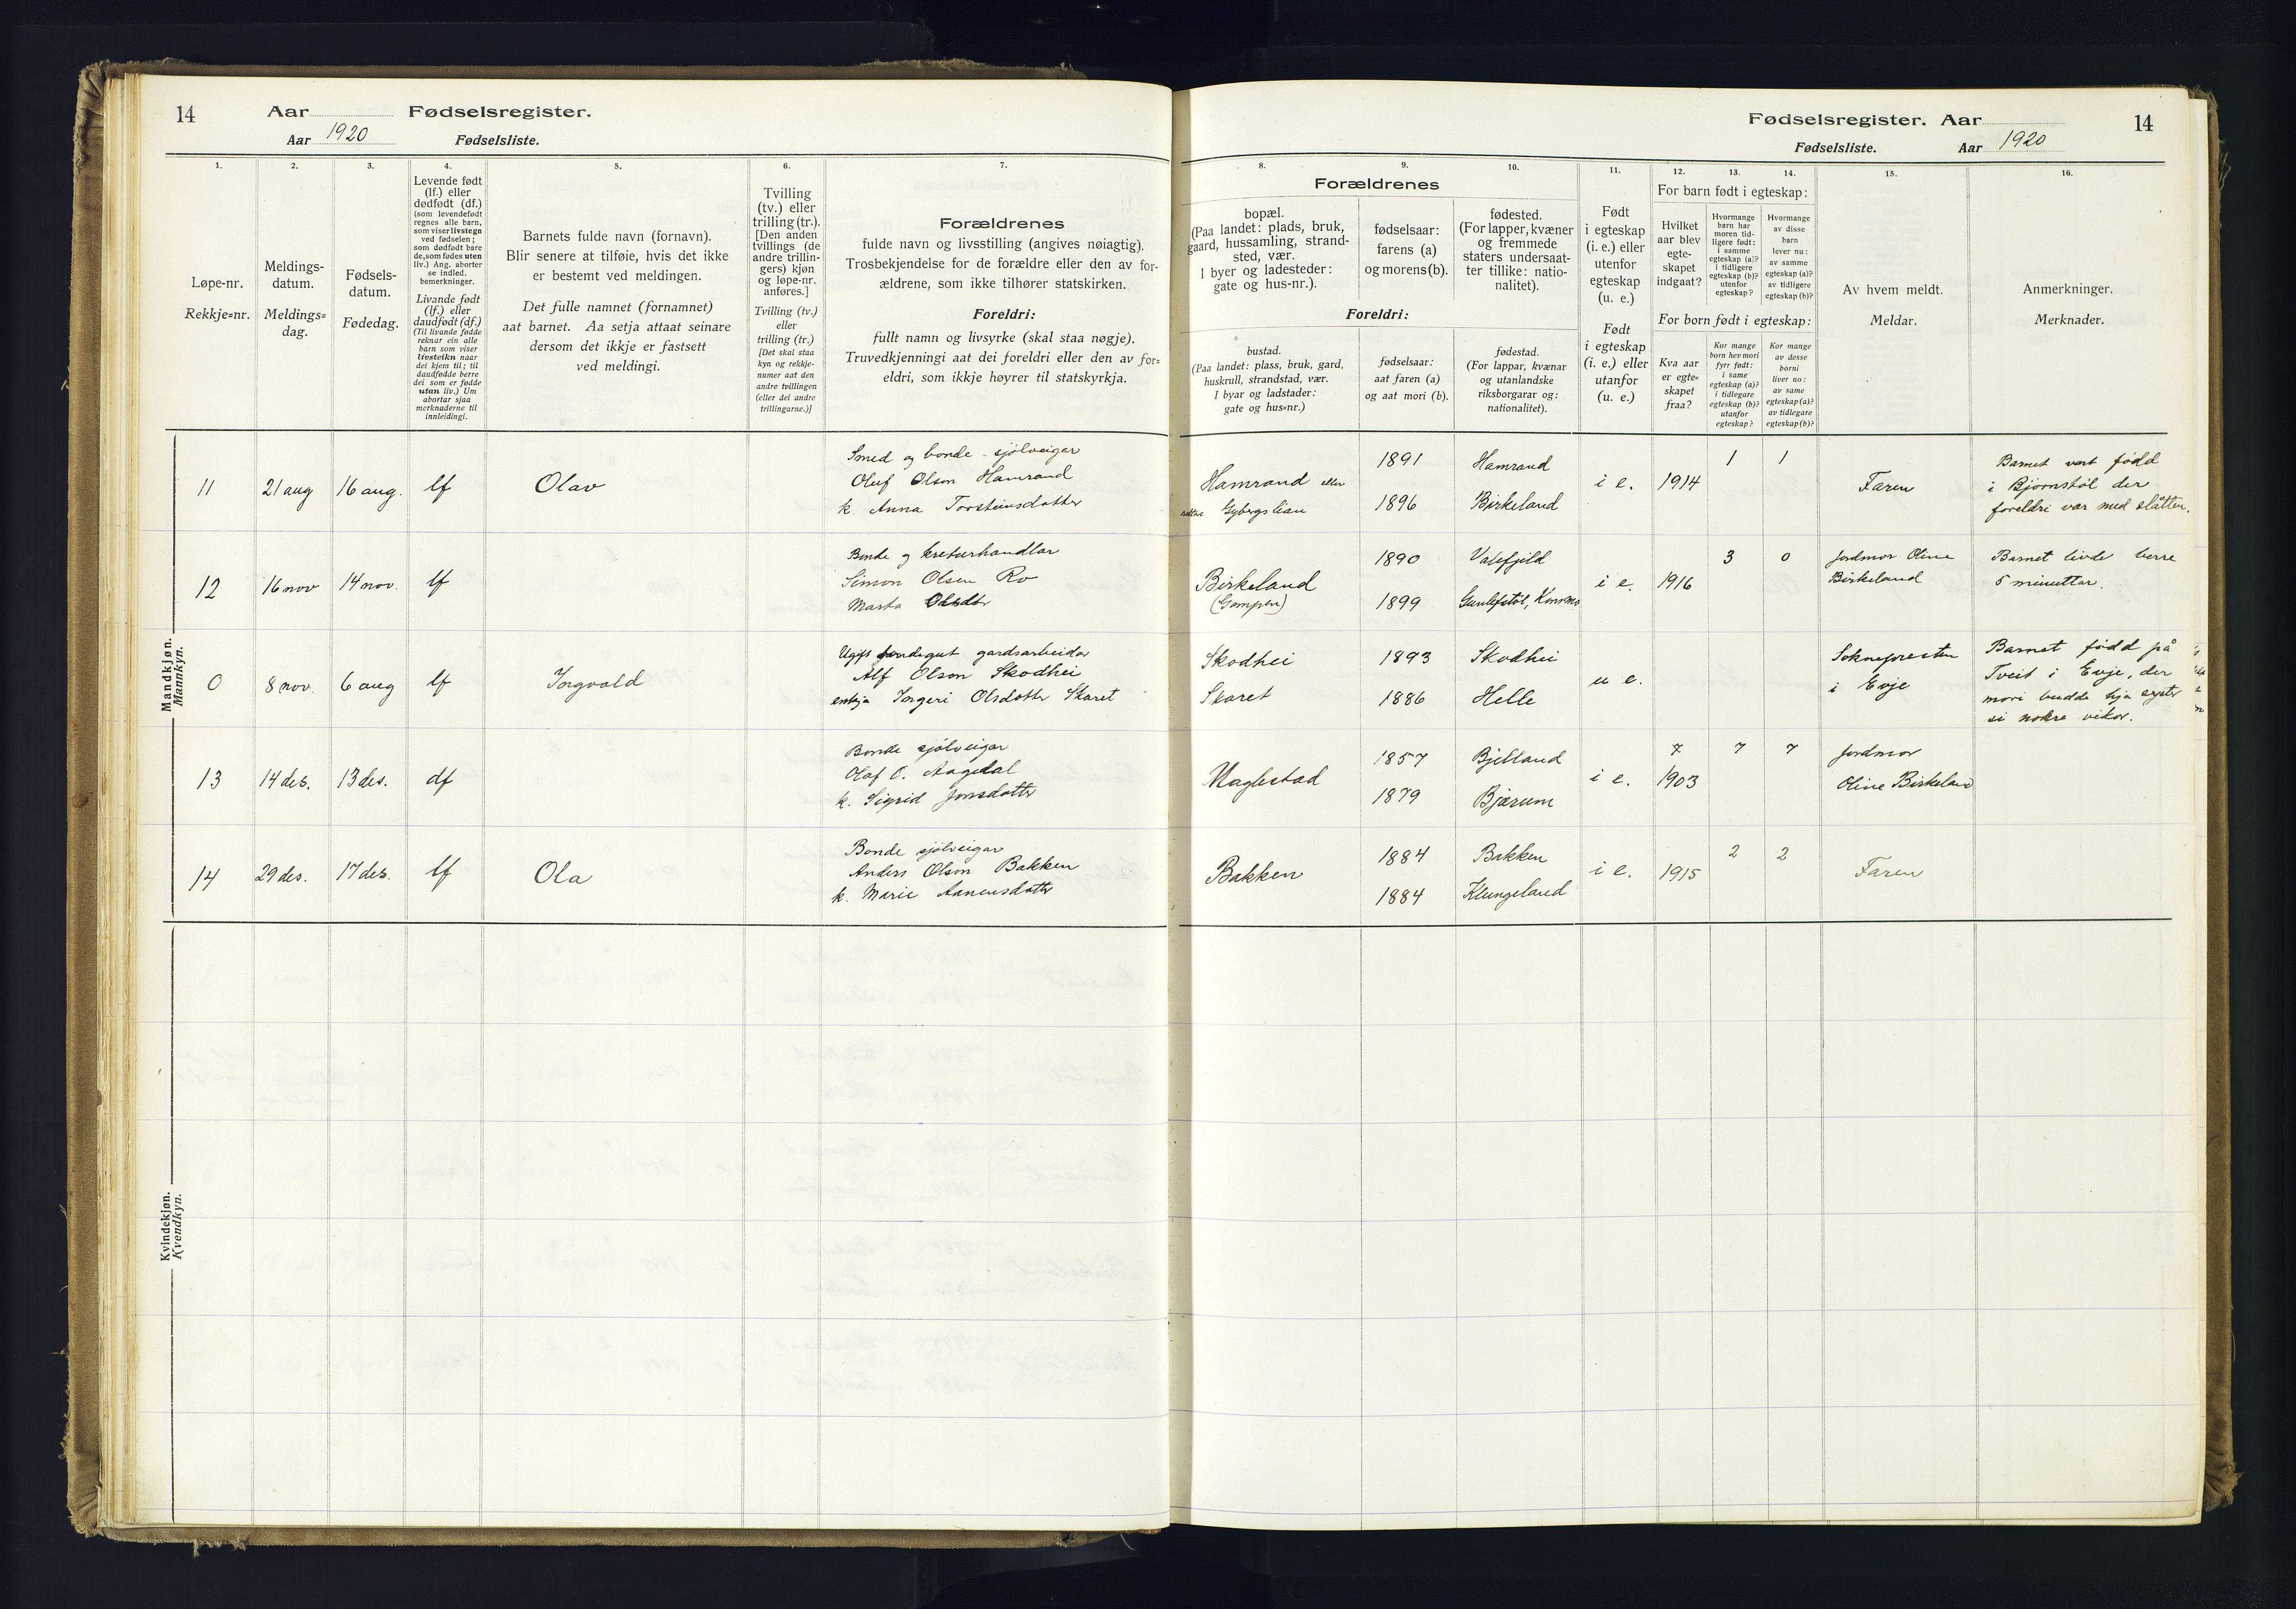 14
Aar
Fødselsregister.
Aar 1920
Fødselsliste.
1.
Løpe-nr.
Rekkje=nr.
2.
Meldings-
datum.
Meldings=
dag.
3.
Fødsels-
datum.
Fødedag.
4.
Levende født
(lf.) eller
dødfødt (df.)
(som levendefødt
regnes alle barn,
som viser livstegn
ved fødselen;
som dødfødt bare
de, som fødes uten
liv.) Ang. aborter
se indled.
bemerkninger.
Livande født
(lf.) eller
daudfødt (df.)
(Til livande fødde
reknar ein alle
barn som viser
livsteikn naar
dei kjem til; til
daudfødde berre
dei som er fødde
utan liv.) Um
abortar sjaa
merknaderne til
innleidingi.
5.
Barnets fulde navn (fornavn).
Blir senere at tilføie, hvis det ikke
er bestemt ved meldingen.
Det fulle namnet (fornamnet)
aat barnet. Aa setja attaat seinare
dersom det ikkje er fastsett
ved meldingi.
6.
Tvilling
(tv.) eller
trilling (tr.).
[Den anden
tvillings (de
andre trillin-
gers) kjøn
og løpe-nr.
anføres.]
Tvilling (tv.)
eller
trilling (tr.)
[Det skal staa
kyn og rekkje-
numer aat den
andre tvillingen
(eller dei andre
trillingarne.)]
7.
Forældrenes
fulde navn og livsstilling (angives nøiagtig).
Trosbekjendelse for de forældre eller den av for-
ældrene, som ikke tilhører statskirken.
Foreldri:
fullt namn og livsyrke (skal staa nøgje).
Truvedkjenningi aat dei foreldri eller den av for=
eldri, som ikkje høyrer til statskyrkja.
Mandkjøn.
Mannkyn.
11
21 aug
16 aug.
lf
Olav
Smed og bonde - sjølveigar
Oluf Olson Hamrand
k. Anna Torsteinsdotter
12
16 nov
14 nov.
lf
Bonde og kreturhandlar
Simon Olsen Ro
Marta Olsdtr
0
8 nov.
6 aug
lf
Ingvald
Ugift bondegut gardsarbeidar
Alf Olson Skodhei
enkja Ingeri Olsdotter Skaret
13
14 des.
13 des.
df
Bonde sjølveigar
Olaf O. Aagedal
k. Sigrid Jonsdotter
14
29 des.
17 des.
lf
Ola
Bonde sjølveigar
Anders Olson Bakken
k. Marie Aanensdotter
Kvindekjøn.
Kvendkyn.
Fødselsregister. Aar
14
Fødselsliste.
Aar 1920
8.
Forældrenes
bopæl.
(Paa landet: plads, bruk,
gaard, hussamling, strand-
sted, vær.
I byer og ladesteder:
gate og hus-nr.).
9.
fødselsaar:
farens (a)
og morens (b).
10.
fødested.
(For lapper, kvæner
og fremmede
staters undersaat-
ter tillike: natio-
nalitet).
Foreldri:
bustad.
(Paa landet: plass, bruk, gard,
huskrull, strandstad, vær.
I byar og ladstader:
gate og hus=nr.)
fødselsaar:
aat faren (a)
og aat mori (b).
fødestad.
(For lappar, kvænar
og utanlandske
riksborgarar og:
nationalitet).
11.
Født
i egteskap
(i. e.) eller
utenfor
egteskap
(u. e.)
Født
i egteskap
(i. e.) eller
utanfor
(u. e.)
12.
13.
14.
For barn født i egteskap:
Hvilket
aar blev
egte-
skapet
indgaat?
Hvormange
barn har
moren tid-
ligere født:
i samme
egteskap (a)?
i tidligere
egteskap (b)?
utenfor
egteskap?
Hvormange
av disse
barn
lever nu:
av samme
egteskap (a)?
av tidligere
egteskap (b)?
For born født i egteskap:
Kva aar
er egte=
skapet
fraa?
Kor mange
born hev mori
fyrr født:
i same
egteskap (a)?
i tidlegare
egteskap (b)?
utanfor
egteskap?
Kor mange
av desse
borni
liver no:
av same
egteskap (a)?
av tidlegare
egteskap (b)?
15.
Av hvem meldt.
Meldar.
16.
Anmerkninger.
Merknader.
Hamrand eller
Gybergslian
1891
1896
Hamrand
Birkeland
i e.
1914
1
1
Faren
Barnet vart fødd
i Bjørnstøl der
foreldri var med slåtten.
Birkeland
(Gampen)
1890
1899
Vatefjild
Gunlefstøl, Konsmo
i e.
1916
3
0
Jordmor Oline
Birkeland
Barnet livde berre
5 minuttar.
Skodhei
Skaret
1893
1886
Skodhei
Helle
u e.
Sokneprestn
i Evje
Barnet fødd på
Tveit i Evje, der
mori budde hja syster
si nokre vikor.
1857
1879
Bjelland
Bjærum
i e.
1903
7
7
Jordmor
Oline Birkeland
Bakken
1884
1884
Bakken
Klungeland
i e.
1915
2
2
Faren